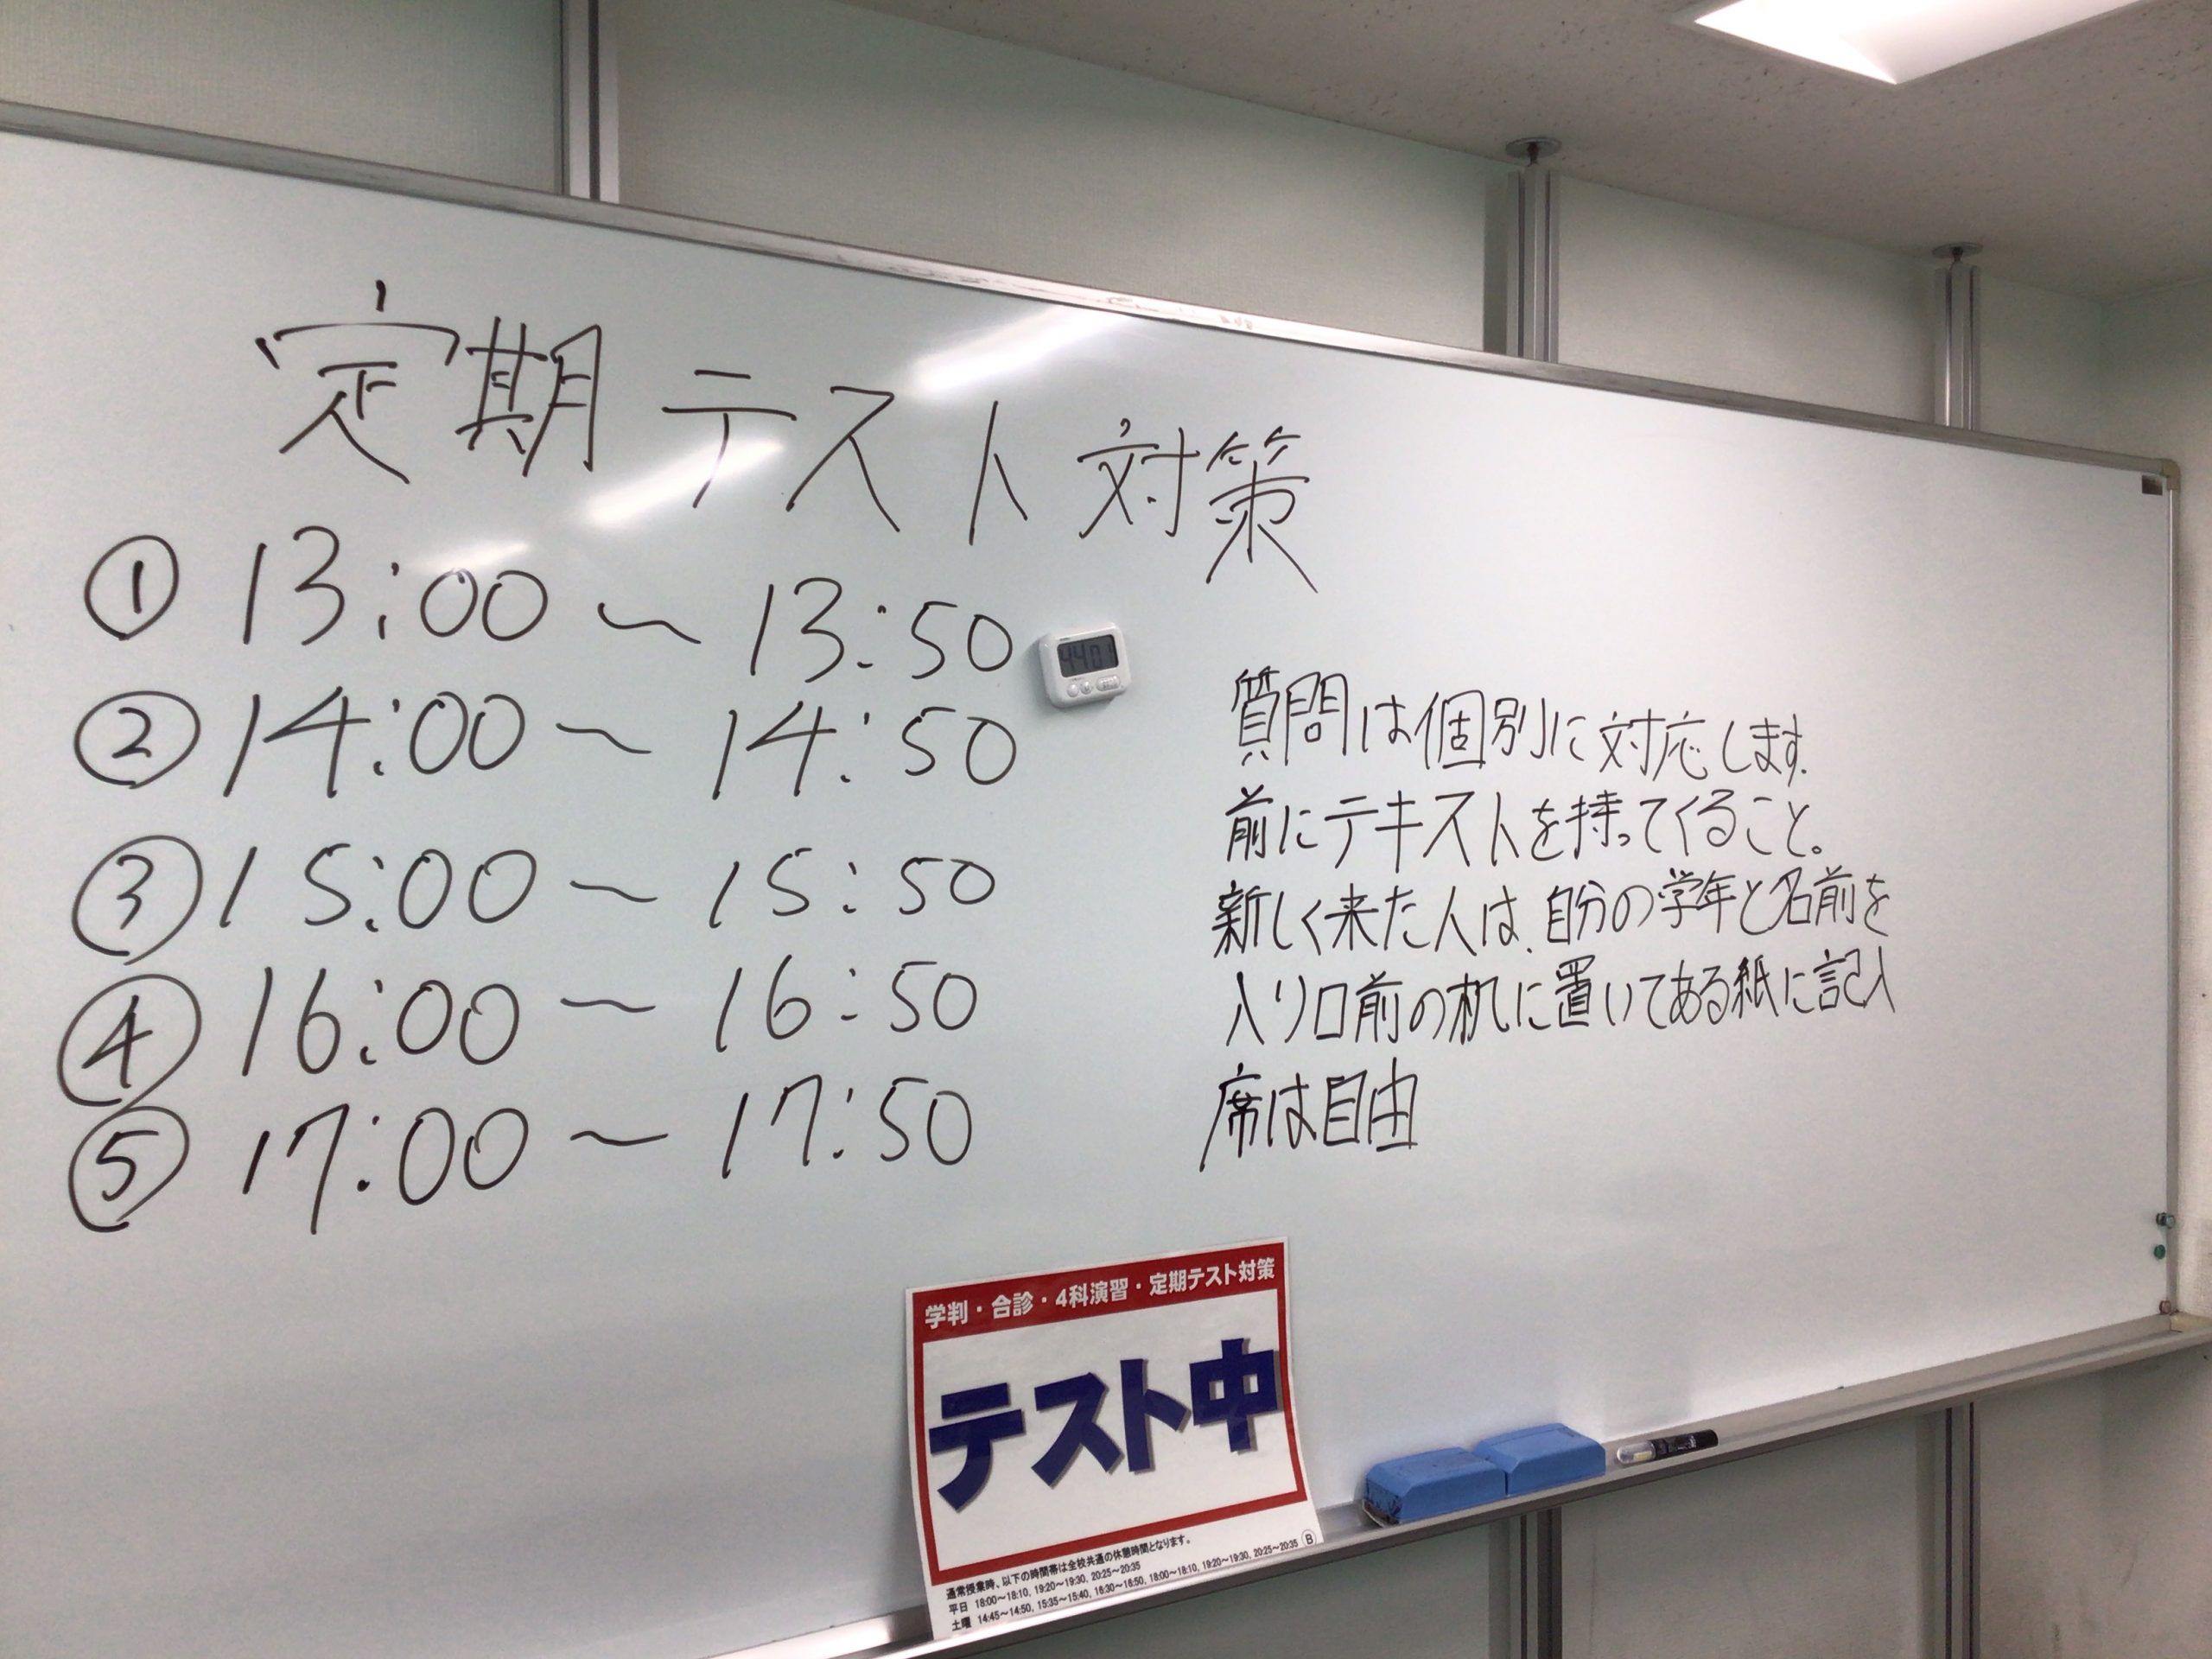 定期テスト対策
① 13:00～13:50
② 14:00～14:50
③ 15:00～15:50
④ 16:00～16:50
⑤ 17:00～17:50
質問は個別に対応します。
前にテキストを持ってくること。
新しく来た人は、自分の学年と名前を
入り口前の机に置いてある紙に記入
席は自由
学判・合診・4科演習・定期テスト対策
テスト中
通常授業時、以下の時間帯は全校共通の休憩時間となります。
平日 18:00～18:10, 19:20～19:30, 20:25～20:35
土曜 14:45～14:50, 15:35～15:40, 16:30～16:50, 18:00～18:10, 19:20～19:30, 20:25～20:35 Ⓑ